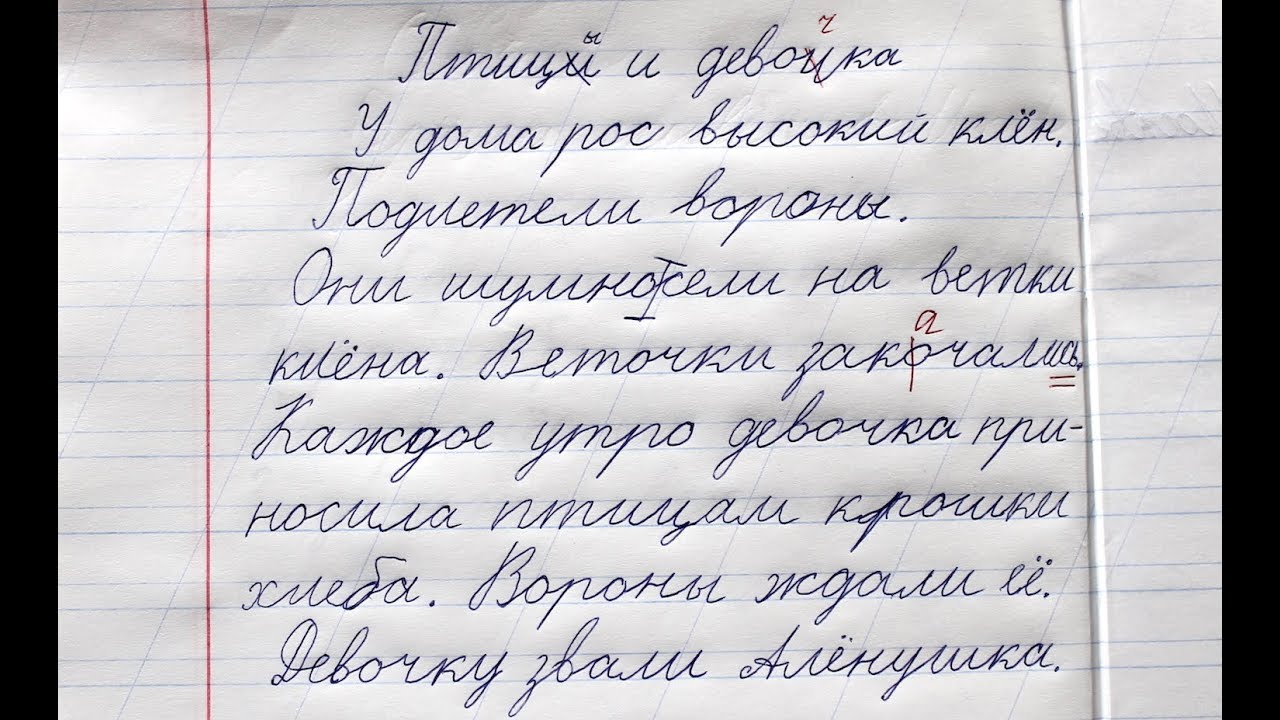 Птицы и девочка
У дома рос высокий клён.
Подлетели вороны.
Они шумно сели на ветки
клёна. Веточки закачались.
Каждое утро девочка при-
носила птицам крошки
хлеба. Вороны ждали её.
Девочку звали Алёнушка.